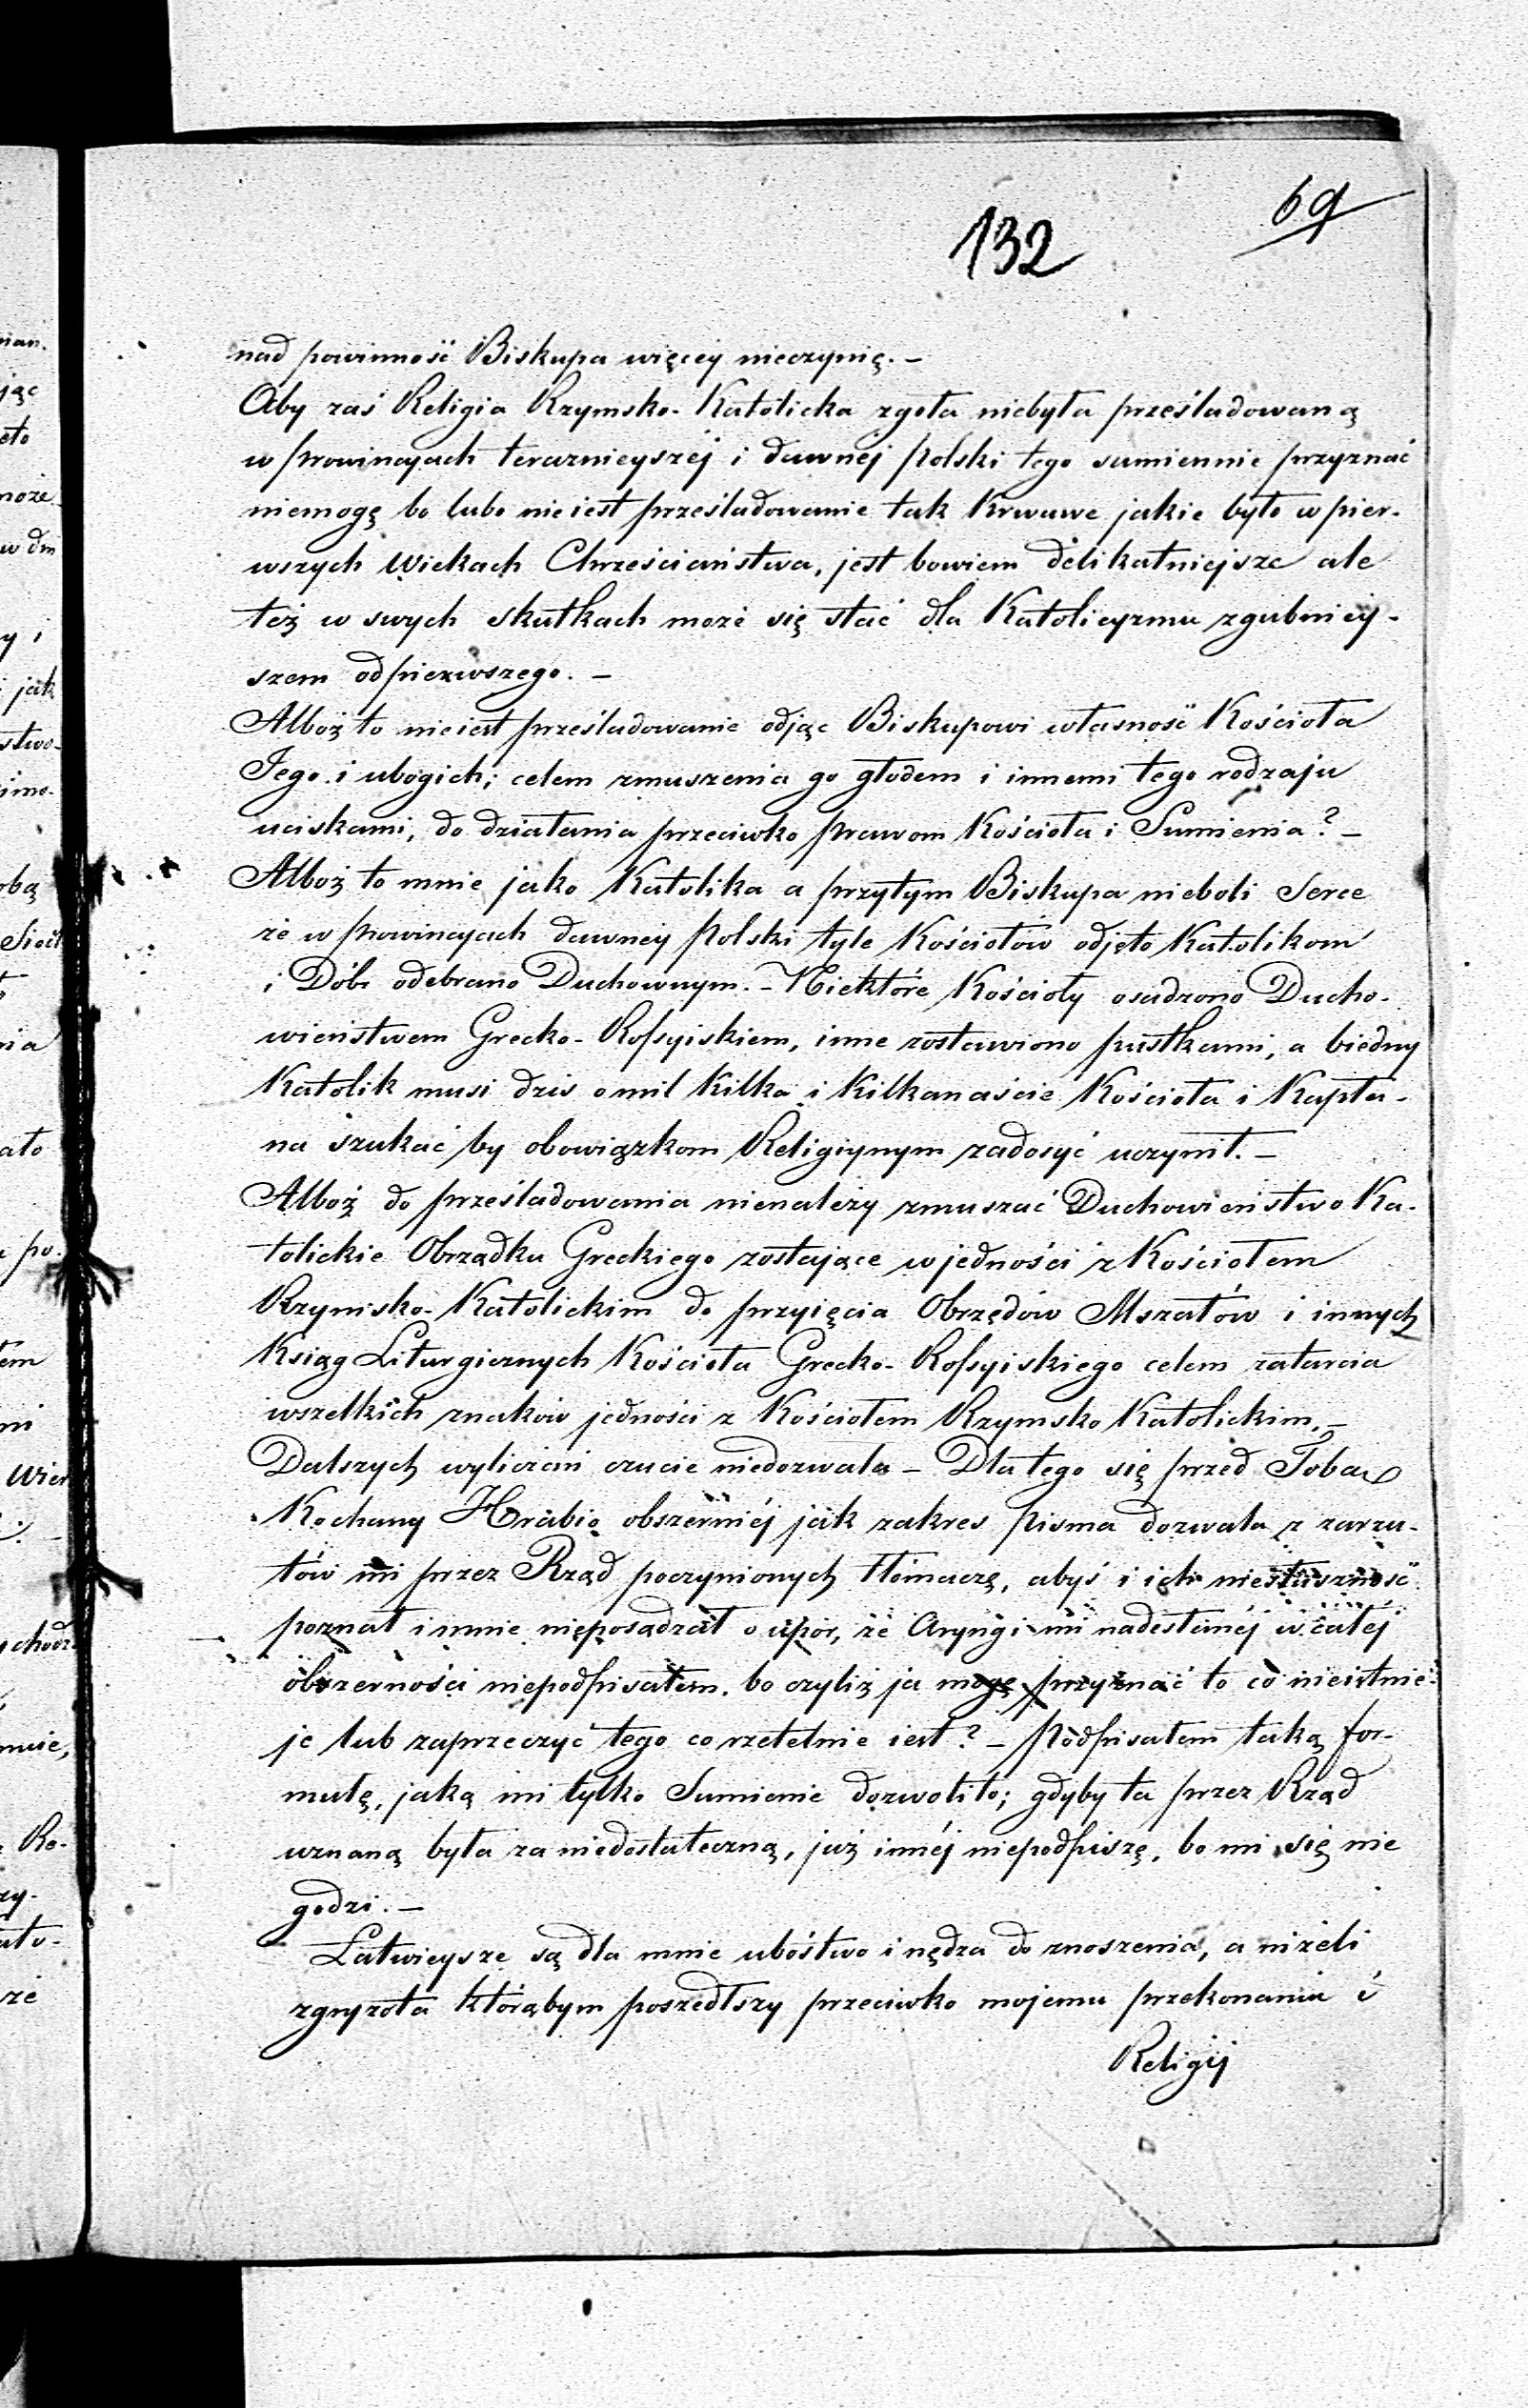 69
132
nad powinność Biskupa więcey nieczynię. –
Aby zaś Religia Rzymsko-Katolicka zgoła niebyła prześladowaną
w prowincyach terazniejszéj i dawnéj Polski tego sumiennie przyznać
niemogę bo lubo nieiest prześladowanie tak krwawe jakie było w pier-
wszych wiekach Chrześciaństwa, jest bowiem delikatniejsze ale
też w swych skutkach może się stać dla Katolicyzmu zgubniey-
szem od pierwszego. –
Alboż to nieiest prześladowanie odjąc Biskupowi własność Kościoła
Jego i ubogich; celem zmuszenia go głodem i innemi tego rodzaju
uciskami, do działania przeciwko prawom Kościoła i Sumienia? –
Alboż to mnie jako Katolika a przytym Biskupa nieboli Serce
że w prowincyach dawney Polski tyle Kościołów odjęto Katolikom
i Dóbr odebrano Duchownym. – Niektóre Kościoły osadzono Ducho-
wieństwem Grecko-Rossyiskiem, inne zostawiono pustkami, a biedny
Katolik musi dziś o mil kilka i kilkanaście Kościoła i Kapła-
na szukać by obowiązkom Religiynym zadosyć uczynił. –
Alboż do prześladowania nienależy zmuszać Duchowieństwo Ka-
tolickie Obrządku Greckiego zostające w jedności z Kościołem
Rzymsko-Katolickim do przyięcia Obrzędów Mszałów i innych
Ksiąg Liturgicznych Kościoła Grecko-Rossyiskiego celem zatarcia
wszelkich znaków jedności z Kościołem Rzymsko Katolickim, –
Dalszych wyliczeń czucie niedozwala – Dla tego się przed Tobą
Kochany Hrabio obszerniéj jak zakres pisma dozwala z zarzu-
tów mi przez Rząd poczynionych tłómaczę, abyś i ich niesłuszność
poznał i mnie nieposądzał o upór, że Aryngi mi nadesłanéj w całéj
obszerności niepodpisałem, bo czyliż ja mogę przyznać to co nieistnie-
je lub zaprzeczyć tego co rzetelnie iest? – Podpisałem taką for-
mułę, jaką mi tylko Sumienie dozwoliło; gdyby ta przez Rząd
uznaną była za niedostateczną, już innéj niepodpiszę, bo mi się nie
godzi. –
Łatwieysze są dla mnie ubóstwo i nędza do znoszenia, a niżeli
zgryzota którąbym poszedłszy przeciwko mojemu przekonaniu i
Religij